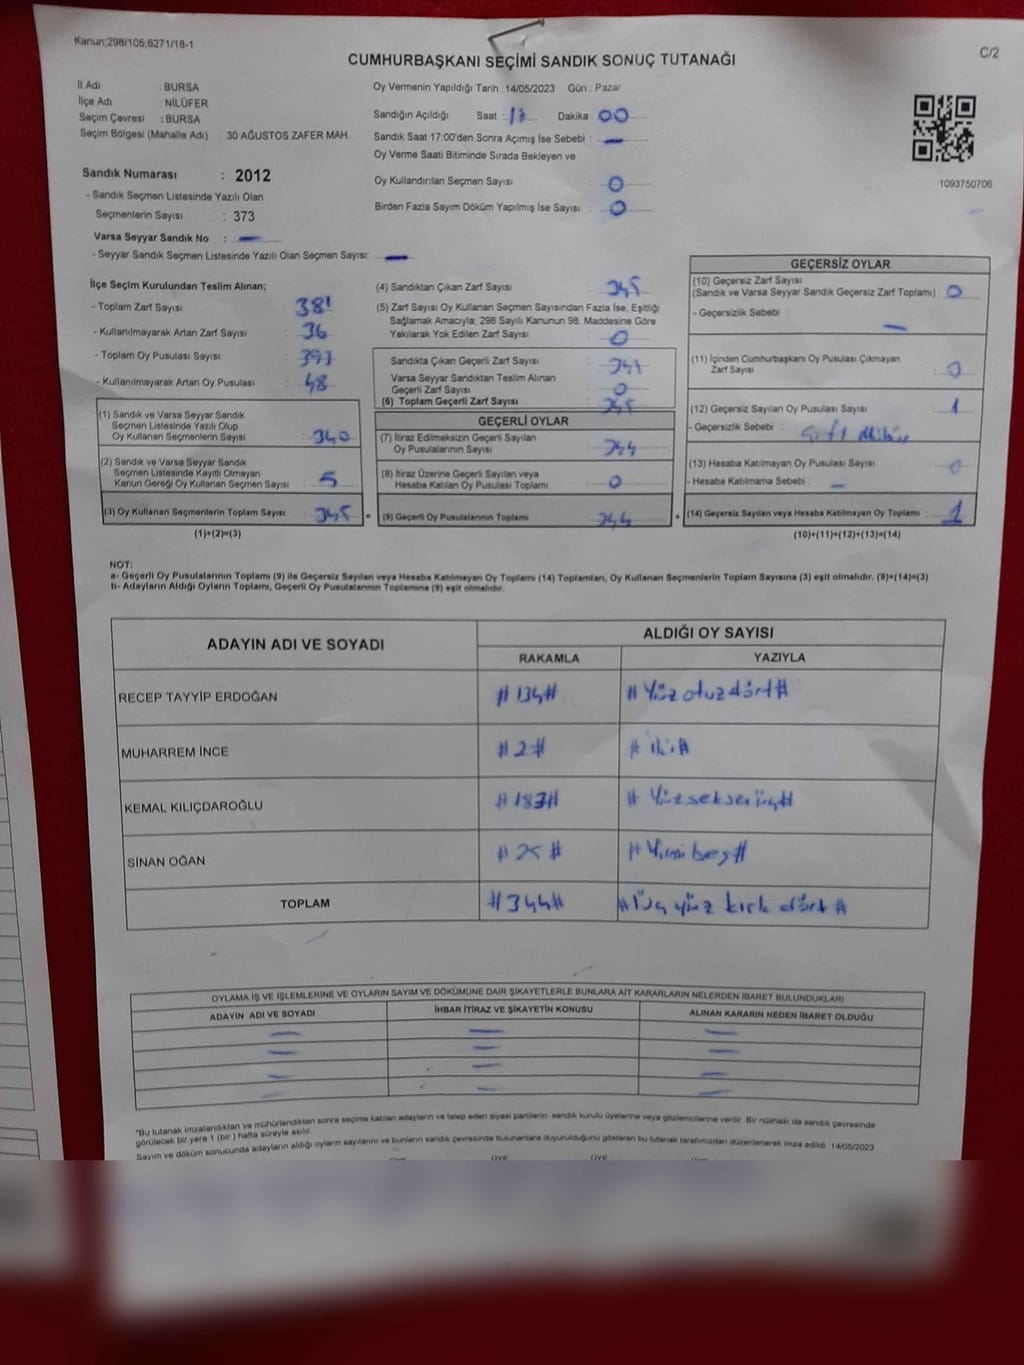 Kanun;298/105,6271/18-1
C/2
CUMHURBAŞKANI SEÇİMİ SANDIK SONUÇ TUTANAĞI
İl Adı : BURSA
İlçe Adı : NİLÜFER
Seçim Çevresi : BURSA
Seçim Bölgesi (Mahalle Adı) : 30 AĞUSTOS ZAFER MAH.
Oy Vermenin Yapıldığı Tarih :14/05/2023 Gün : Pazar
Sandığın Açıldığı Saat : 17 Dakika : 00
Sandık Saat 17:00'den Sonra Açımış İse Sebebi : —
Oy Verme Saati Bitiminde Sırada Bekleyen ve
Oy Kullandırılan Seçmen Sayısı : 0
Birden Fazla Sayım Döküm Yapılmış İse Sayısı : 0
1093750706
Sandık Numarası : 2012
- Sandık Seçmen Listesinde Yazılı Olan
Seçmenlerin Sayısı : 373
Varsa Seyyar Sandık No : —
- Seyyar Sandık Seçmen Listesinde Yazılı Olan Seçmen Sayısı: —
İlçe Seçim Kurulundan Teslim Alınan;
- Toplam Zarf Sayısı : 381
- Kullanılmayarak Artan Zarf Sayısı : 36
- Toplam Oy Pusulası Sayısı : 393
- Kullanılmayarak Artan Oy Pusulası : 48
(1) Sandık ve Varsa Seyyar Sandık
Seçmen Listesinde Yazılı Olup
Oy Kullanan Seçmenlerin Sayısı : 340
(2) Sandık ve Varsa Seyyar Sandık
Seçmen Listesinde Kayıtlı Olmayan
Kanun Gereği Oy Kullanan Seçmen Sayısı : 5
(3) Oy Kullanan Seçmenlerin Toplam Sayısı : 345 =
(1)+(2)=(3)
(4) Sandıktan Çıkan Zarf Sayısı : 345
(5) Zarf Sayısı Oy Kullanan Seçmen Sayısından Fazla İse, Eşitliği
Sağlamak Amacıyla; 298 Sayılı Kanunun 98. Maddesine Göre
Yakılarak Yok Edilen Zarf Sayısı : 0
Sandıkta Çıkan Geçerli Zarf Sayısı :
Varsa Seyyar Sandıktan Teslim Alınan
Geçerli Zarf Sayısı : 0
(6) Toplam Geçerli Zarf Sayısı : 345
GEÇERLİ OYLAR
(7) İtiraz Edilmeksizin Geçerli Sayılan
Oy Pusulalarının Sayısı : 344
(8) İtiraz Üzerine Geçerli Sayılan veya
Hesaba Katılan Oy Pusulası Toplamı : 0
(9) Geçerli Oy Pusulalarının Toplamı : 344 +
GEÇERSİZ OYLAR
(10) Geçersiz Zarf Sayısı
(Sandık ve Varsa Seyyar Sandık Geçersiz Zarf Toplamı) : 0
- Geçersizlik Sebebi : —
(11) İçinden Cumhurbaşkanı Oy Pusulası Çıkmayan
Zarf Sayısı : 0
(12) Geçersiz Sayılan Oy Pusulası Sayısı : 1
- Geçersizlik Sebebi : Çift Mühür
(13) Hesaba Katılmayan Oy Pusulası Sayısı : 0
- Hesaba Katılmama Sebebi : —
(14) Geçersiz Sayılan veya Hesaba Katılmayan Oy Toplamı : 1
(10)+(11)+(12)+(13)=(14)
NOT:
a- Geçerli Oy Pusulalarının Toplamı (9) ile Geçersiz Sayılan veya Hesaba Katılmayan Oy Toplamı (14) Toplamları, Oy Kullanan Seçmenlerin Toplam Sayısına (3) eşit olmalıdır. (9)+(14)=(3)
b- Adayların Aldığı Oyların Toplamı, Geçerli Oy Pusulalarının Toplamına (9) eşit olmalıdır.
ADAYIN ADI VE SOYADI ALDIĞI OY SAYISI
RAKAMLA YAZIYLA
RECEP TAYYİP ERDOĞAN #134# #Yüz otuz dört#
MUHARREM İNCE #2# #iki#
KEMAL KILIÇDAROĞLU #183# #Yüzseksenüç#
SİNAN OĞAN #25# #Yirmibeş#
TOPLAM #344# #Üç yüz kırk dört#
OYLAMA İŞ VE İŞLEMLERİNE VE OYLARIN SAYIM VE DÖKÜMÜNE DAİR ŞİKAYETLERLE BUNLARA AİT KARARLARIN NELERDEN İBARET BULUNDUKLARI
ADAYIN ADI VE SOYADI İHBAR İTİRAZ VE ŞİKAYETİN KONUSU ALINAN KARARIN NEDEN İBARET OLDUĞU
— — —
— — —
— — —
— — —
*Bu tutanak imzalandıktan ve mühürlendikten sonra seçime katılan adayların ve talep eden siyasi partilerin sandık kurulu üyelerine veya gözlemcilerine verilir. Bir nüshası da sandık çevresinde
görülecek bir yere 1 (bir ) hafta süreyle asılır.
Sayım ve döküm sonucunda adayların aldığı oyların sayılarını ve bunların sandık çevresinde bulunanlara duyurulduğunu gösteren bu tutanak tarafımızdan düzenlenerek imza edildi. 14/05/2023
ÜYE ÜYE ÜYE